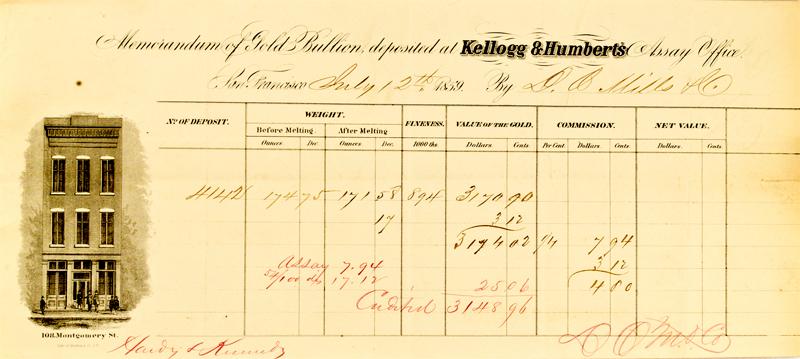 Memorandum of Gold Bullion, deposited at Kellogg & Humbert's Assay Office.
San Francisco July 12th, 1859. By D. O. Mills & Co
No. OF DEPOSIT. WEIGHT. FINENESS. VALUE OF THE GOLD. COMMISSION. NET VALUE.
Before Melting After Melting
Ounces Dec. Ounces Dec. 1000 ths. Dollars Cents Per Cent. Dollars Cents Dollars Cents
4142 174 75 171 58 894 3170 90
17 3 12
3174 02 1/4 7 94
3 12
Assay 7.94 4 80
17.12 25 06
Credited 3148 96
108 Montgomery St.
Hardy & Kennedy
D O M & Co